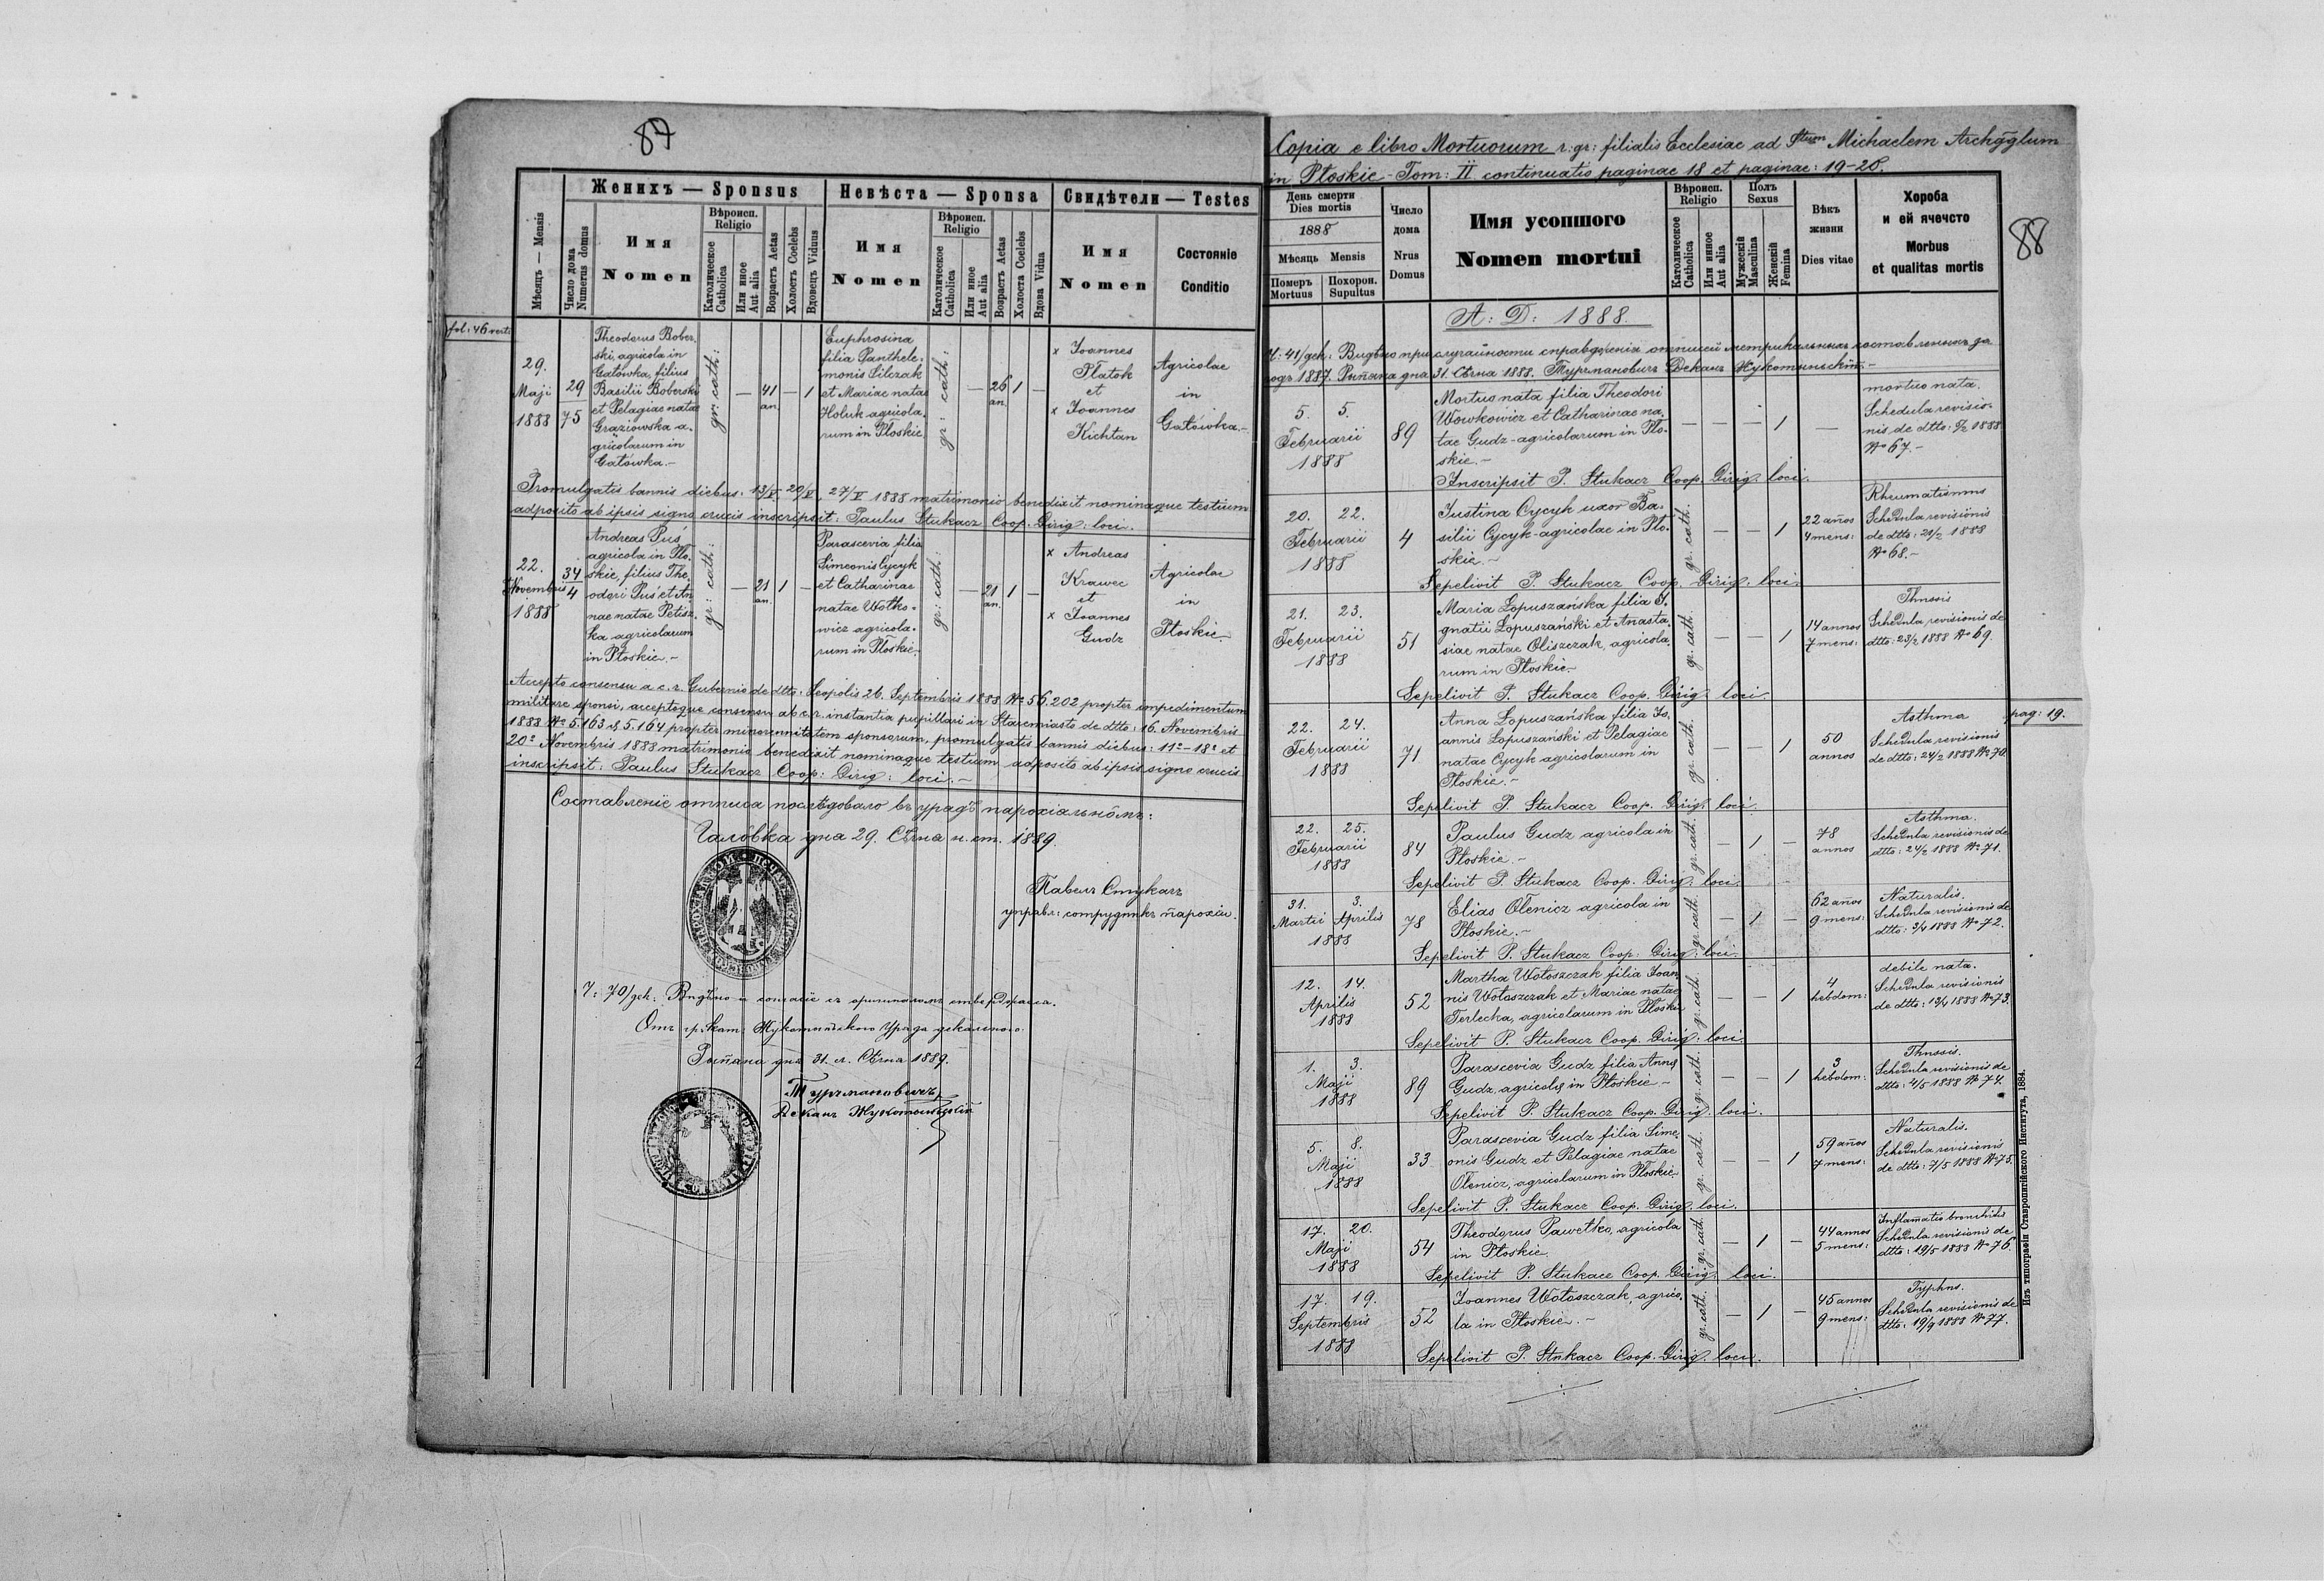 87
Женихъ — Sponsus
Невѣста — Sponsa
Свидѣтели — Testes
Мѣсяць — Mensis
Число дома
Numerus domus
Имя
Nomen
Вѣроисп.
Religio
Католическое
Catholica
Или инное
Aut alia
Возрастъ Aetas
Холостъ Coelebs
Вдовецъ Viduus
Имя
Nomen
Вѣроисп.
Religio
Католическое
Catholica
Или инное
Aut alia
Возрастъ Aetas
Холоста Coelebs
Вдова Vidua
Имя
Nomen
Состояніе
Conditio
fol: 46 verti
29.
Maji
1888
29
75
Theodorus Bober,
ski, agricola in
Gałówka, filius
Basilii Boberski
et Pelagiae natae
Graziowska a-
gricolarum in
Gałówka.-
gr: cath:
—
41
an.
—
1
Euphrosina
filia Panthele-
monis Silczak
et Mariae natae
Hołuk agricola-
rum in Płoskie
gr: cath:
—
26
an.
1
—
x Joannes
Płatok
et
x Joannes
Kichtan
Agricolae
in
Gałówka.-
Promulgatis bannis diebus: 13/V, 20/V, 27/V 1888 matrimonio benedixit nominaque testium
adposito ab ipsis signo crucis inscripsit: Paulus Stukacz Coop. Dirig: loci.
22.
Novembris
1888
34
4
Andreas Puś
agricola in Pło-
skie, filius The-
odori Puś et An-
nae natae Petisz-
ka agricolarum
in Płoskie.-
gr: cath:
—
21
an.
1
—
Parascevia filia
Simeonis Cycyk
et Catharinae
natae Wołko-
wicz agricola-
rum in Płoskie.
gr: cath:
—
21
an.
1
—
x Andreas
Krawec
et
x Joannes
Gudz
Agricolae
in
Płoskie.
Accepto consensu a c. r. Gubernio de dtto: Leopolis 26. Septembris 1888 No 56.202 propter impedimentum
militare sponsi, acceptoque consensu ab c. r. instantia pupillari in Staremiasto de dtto: 16. Novembris
1888 No 5.163 & 5.164 propter minorennitatem sponsorum, promulgatis bannis diebus: 11o - 18o et
20o Novembris 1888 matrimonio benedixit nominaque testium adposito ab ipsis signo crucis
inscripsit: Paulus Stukacz Coop: Dirig: loci.-
Составленіе отписа послѣдовало въ урядѣ парохіальномъ:
Галôвка дна 29. Сѣчня н. ст. 1889.
Павелъ Стукачъ
управл: сотрудникъ парохіи.
Ч: 70/дек.
Рипяна дня 31. л. Сѣчня 1889.
Турчмановичъ
Деканъ Жукотинскій
Copia e libro Mortuorum r: gr: filialis Ecclesiae ad Stum Michaelem Archaglum
in Płoskie - Tom: II. continuatio paginae 18 et paginae: 19-20.
88
День смерти
Dies mortis
1888
Мѣсяць Mensis
Померъ
Mortuus
Похорон.
Supultus
Число
дома
Nrus
Domus
Имя усопшого
Nomen mortui
Вѣроисп.
Religio
Католическое
Catholica
Или инное
Aut alia
Полъ
Sexus
Мужескій
Masculina
Женскій
Femina
Вѣкъ
жизни
Dies vitae
Хороба
и ей ячечсто
Morbus
et qualitas mortis
A: D: 1888.
Ч: 41/дек.
рокъ 1887. Рипяна дна 31. Сѣчня 1888. Турчмановичъ Деканъ Жукотинскій.-
5. 5.
Februarii
1888
89
Mortuo nata filia Theodori
Wowkowicz et Catharinae na-
tae Gudz - agricolarum in Pło-
skie.-
— — — 1
—
mortuo nata.
Schedula revisio-
nis de dtto: 5/2 1888
No 67.-
Inscripsit P. Stukacz Coop. Dirig. loci.
20. 22.
Februarii
1888
4
Justina Cycyk uxor Ba-
silii Cycyk - agricolae in Pło-
skie.-
gr. cath.
— — 1
22 años
4 mens:
Rheumatismus
Schedula revisionis
de dtto: 21/2 1888
No 68.-
Sepelivit P. Stukacz Coop. Dirig. loci.
21. 23.
Februarii
1888
51
Maria Łopuszańska filia I-
gnatii Łopuszański et Anasta-
siae natae Oliszczak, agricola-
rum in Płoskie.-
gr. cath.
— — 1
14 annos
7 mens:
Thussis
Schedula revisionis de
dtto: 23/2 1888 No 69.
Sepelivit P. Stukacz Coop. Dirig. loci.
pag: 19.
22. 24.
Februarii
1888
71
Anna Łopuszańska filia Jo-
annis Łopuszański et Pelagiae
natae Cycyk agricolarum in
Płoskie.-
gr. cath.
— — 1
50
annos
Asthma
Schedula revisionis
de dtto: 24/2 1888 No 70.
Sepelivit P. Stukacz Coop. Dirig. loci.
22. 25.
Februarii
1888
84
Paulus Gudz agricola in
Płoskie.-
gr. cath.
— 1 —
78
annos
Asthma.
Schedula revisionis de
dtto: 24/2 1888 No 71.
Sepelivit P. Stukacz Coop. Dirig. loci.
31. 3.
Martii Aprilis
1888
78
Elias Olenicz agricola in
Płoskie.-
gr. cath.
— 1 —
62 años
9 mens:
Naturalis.
Schedula revisionis de
dtto: 3/4 1888 No 72.
Sepelivit P. Stukacz Coop. Dirig. loci.
12. 14.
Aprilis
1888
52
Martha Wołoszczak filia Joan-
nis Wołoszczak et Mariae natae
Terlecka, agricolarum in Płoskie
gr. cath.
— — 1
4
hebdom:
debile nata.
Schedula revisionis
de dtto: 13/4 1888 No 73.
Sepelivit P. Stukacz Coop. Dirig. loci.
1. 3.
Maji
1888
89
Parascevia Gudz filia Annę
Gudz, agricolę in Płoskie.-
gr. cath.
— — 1
3
hebdom:
Thussis.
Schedula revisionis de
dtto: 4/5 1888 No 74.
Sepelivit P. Stukacz Coop. Dirig. loci.
5. 8.
Maji
1888
33
Parascevia Gudz filia Sime-
onis Gudz et Pelagiae natae
Olenicz, agricolarum in Płoskie.
gr. cath.
— — 1
59 años
7 mens:
Naturalis.
Schedula revisionis
de dtto: 7/5 1888 No 75.
Sepelivit P. Stukacz Coop. Dirig. loci.
17. 20.
Maji
1888
54
Theodorus Pawełko, agricola
in Płoskie.
gr. cath.
— 1 —
44 annos
5 mens:
Inflamatio bronchitis
Schedula revisionis de
dtto: 19/5 1888 No 76.
Sepelivit P. Stukacz Coop. Dirig. loci.
17. 19.
Septembris
1888
52
Joannes Wołoszczak, agrico-
la in Płoskie.-
gr. cath.
— 1 —
45 annos
9 mens:
Typhus.
Schedula revisionis de
dtto: 19/9 1888 No 77.
Sepelivit P. Stukacz Coop. Dirig. loci.
Изъ типографіи Ставропигійского Института, 1884.